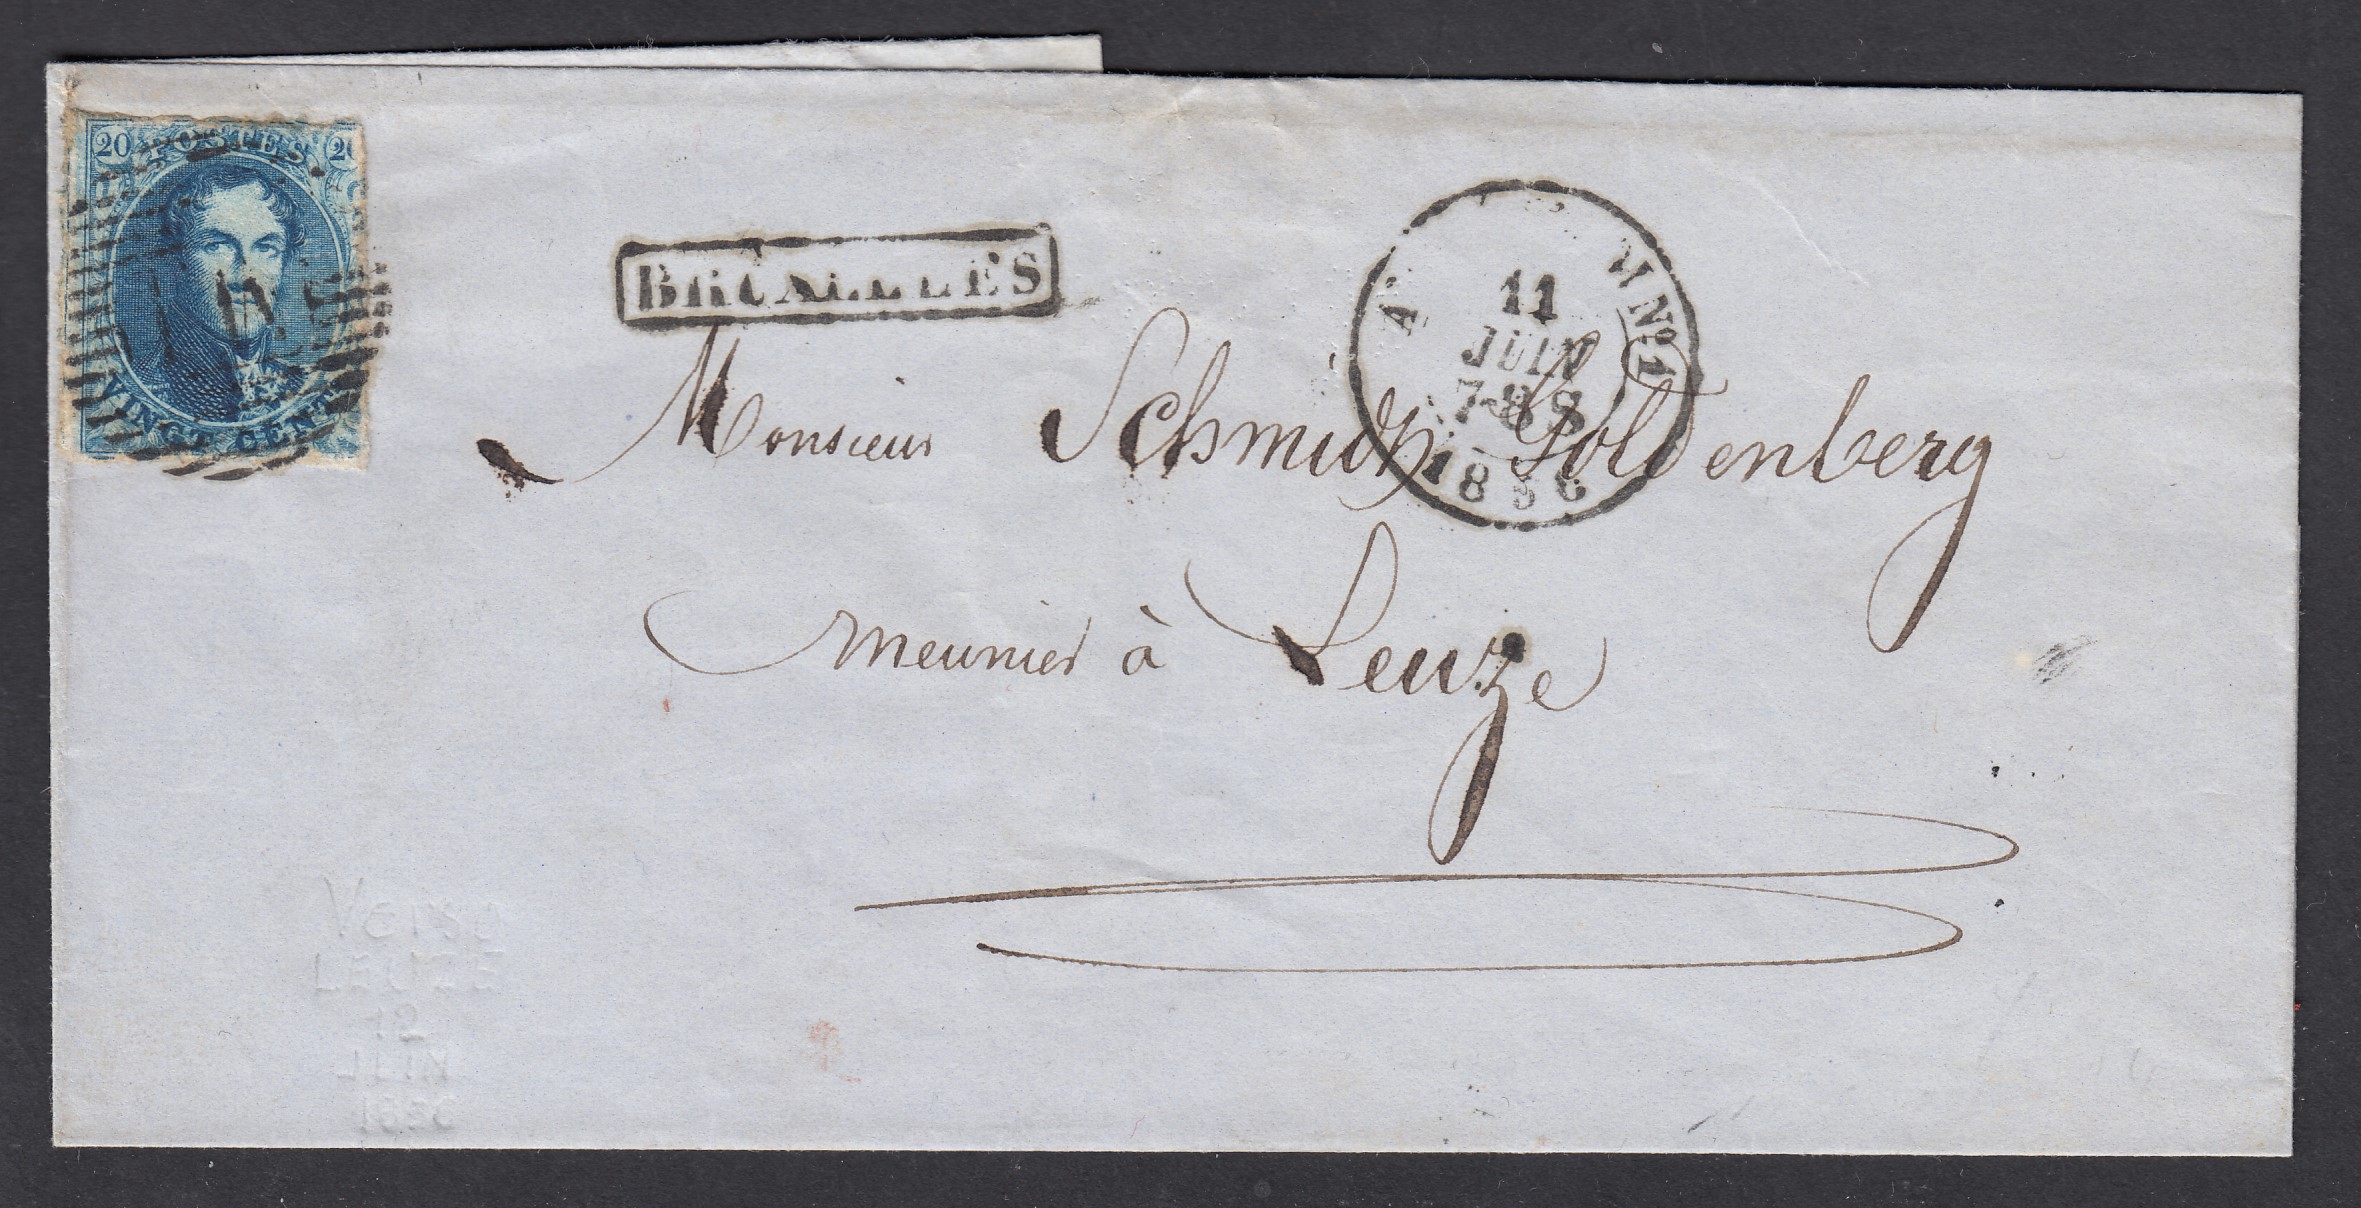 20 POSTES 20
VINGT CENT
BRUXELLES
11
JUIN
7-8 S
Nº 1
1856
Monsieur Schmidt Goldenberg
meunier à Leuze
Verso
LEUZE
12
JUIN
1856